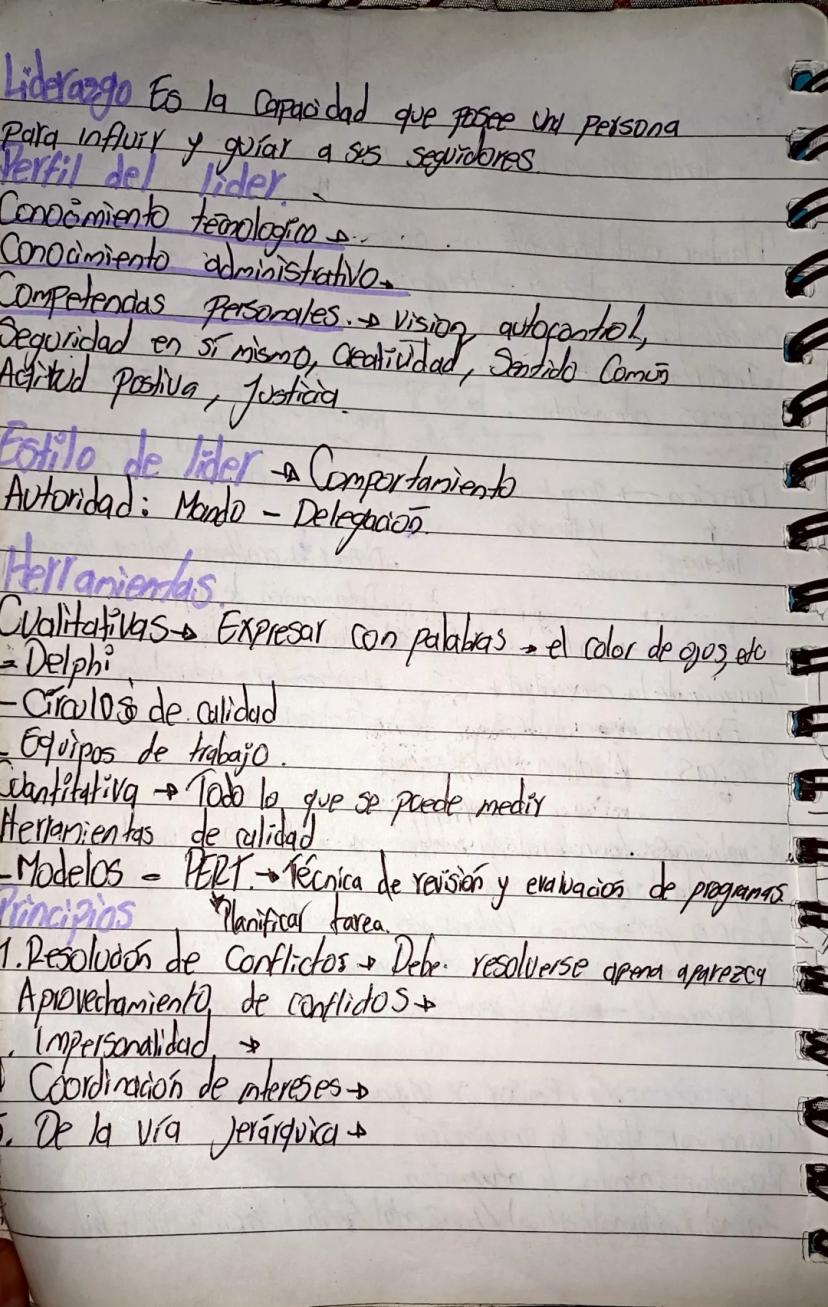 Liderazgo Es la Capacidad que posee una persona
Para influir y guiar a sus seguidores
Perfil del lider.
Conocimiento tecnologico →..
Conocimiento administrativo→
Competencias Personales. → Vision, autocontrol,
Seguridad en sí mismo, Creatividad, Sentido Común
Actitud Postiva, Justicia.
Estilo de lider → Comportamiento
Autoridad: Mando - Delegación.
Herramientas.
Cualitativas → Expresar con palabras → el color de ojos, etc
- Delphi
- Circulos de calidad
- Equipos de trabajo.
Cuantitativa → Todo lo que se puede medir
Herramientas de calidad
- Modelos - PERT. → Técnica de revisión y evaluación de programas.
*Planificar tarea.
Principios
1. Resolución de Conflictos → Debe. resolverse apena aparezca
Aprovechamiento de conflictos →
. Impersonalidad →
Coordinación de intereses →
5. De la vía Jerárquica →